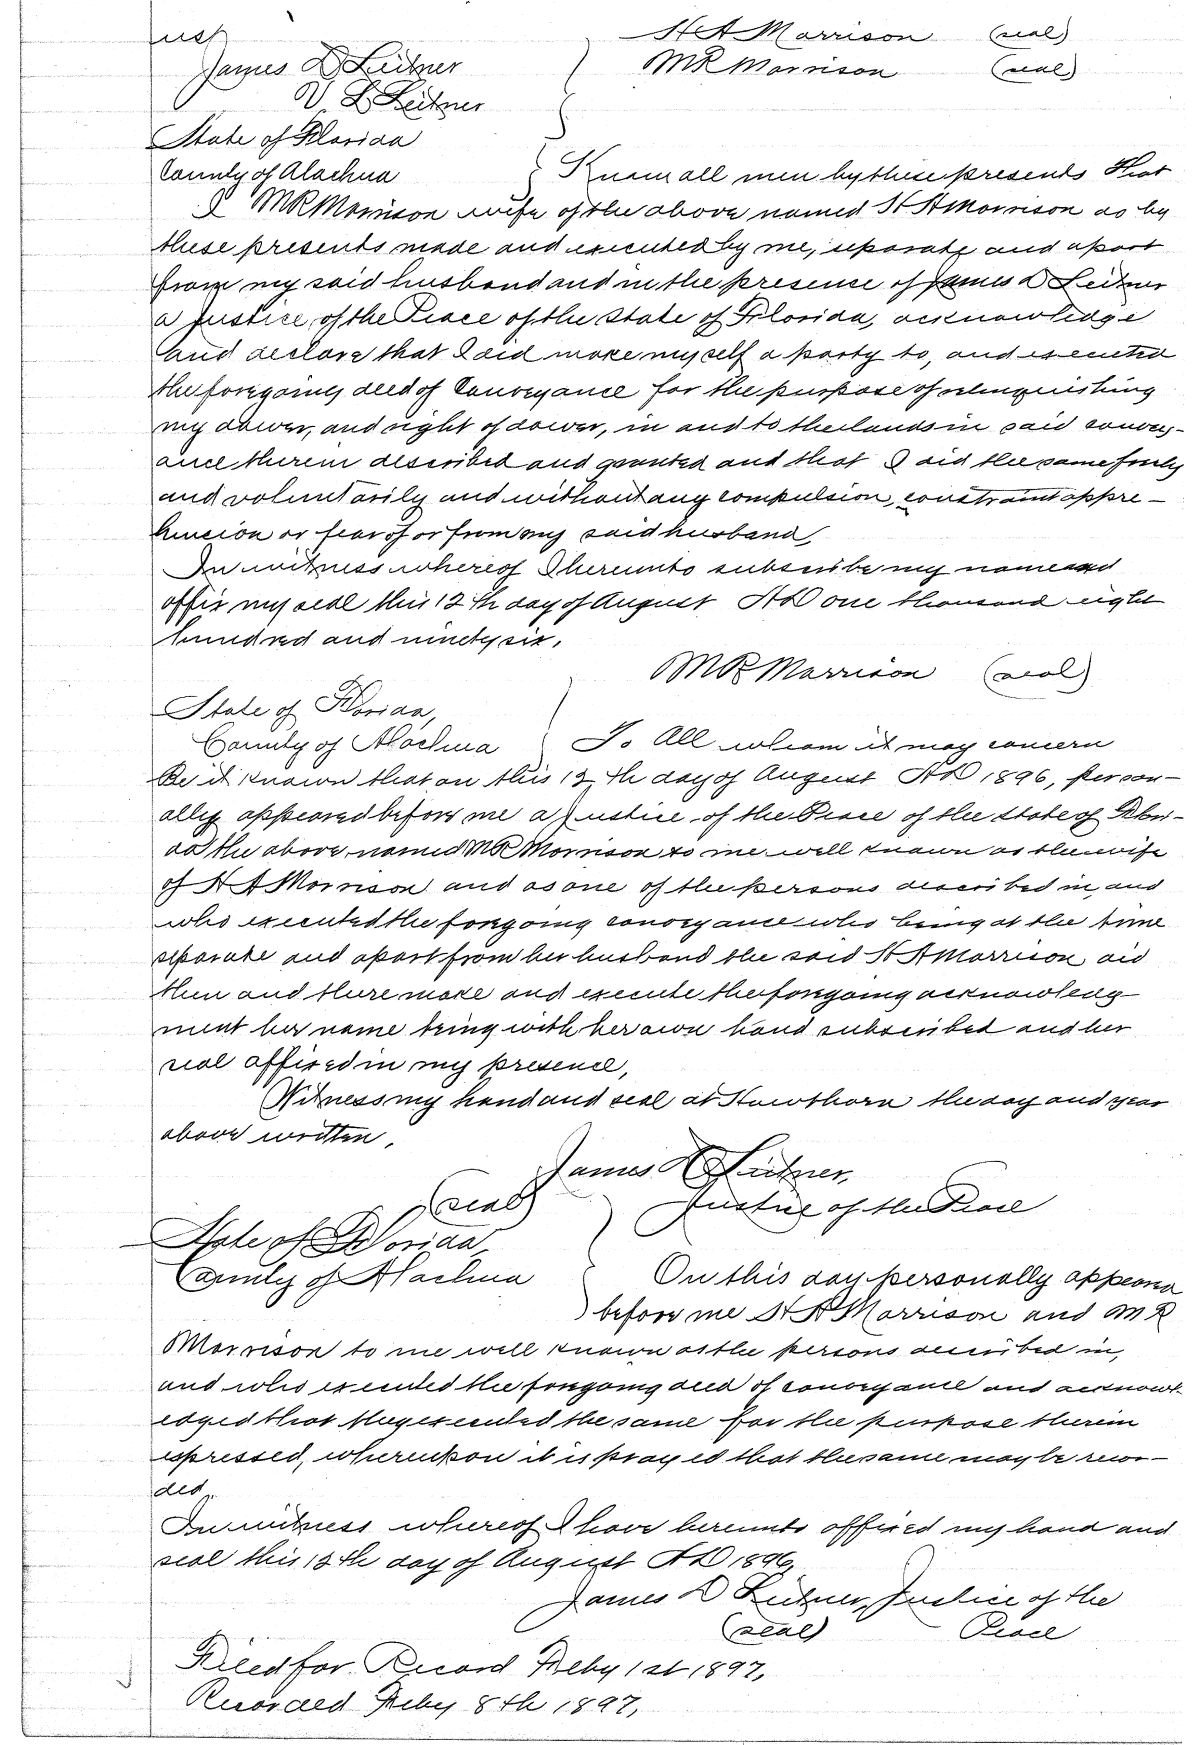 H A Morrison (seal)
James D Leitner M R Morrison (seal)
V. L Leitner
State of Florida
County of Alachua Know all men by these presents that
I M R Morrison wife of the above named H A Morrison do by
these presents made and executed by me, separate and apart
from my said husband and in the presence of James D Leitner
a Justice of the Peace of the State of Florida, acknowledge
and declare that I did make myself a party to, and executed
the foregoing deed of Conveyance for the purpose of relinquishing
my dower, and right of dower, in and to the lands in said convey-
ance therein described and granted and that I did the same freely
and voluntarily and without any compulsion, constraint appre-
hension or fear of or from my said husband,
In witness whereof I hereunto subscribe my name and
affix my seal this 12th day of August A D one thousand eight
hundred and ninety six.
M R Morrison (seal)
State of Florida,
County of Alachua To All whom it may concern
Be it known that on this 12th day of August A D 1896, person-
ally appeared before me a Justice of the Peace of the State of Flori-
da the above named M R Morrison to me well known as the wife
of H A Morrison and as one of the persons described in, and
who executed the forgoing conveyance who being at the time
separate and apart from her husband the said H A Morrison did
then and there make and execute the forgoing acknowledg-
ment her name being with her own hand subscribed and her
seal affixed in my presence,
Witness my hand and seal at Hawthorn the day and year
above written.
James D Leitner,
(seal) Justice of the Peace
State of Florida
County of Alachua On this day personally appeared
before me H A Morrison and M R
Morrison to me well known as the persons described in,
and who executed the forgoing deed of conveyance and acknowl-
edged that they executed the same for the purpose therein
expressed, whereupon it is prayed that the same may be recor-
ded.
In witness whereof I have hereunto affixed my hand and
seal this 12th day of August A D 1896,
James D Leitner, Justice of the
(seal) Peace
Filed for Record Feby 1st 1897,
Recorded Feby 8th 1897,